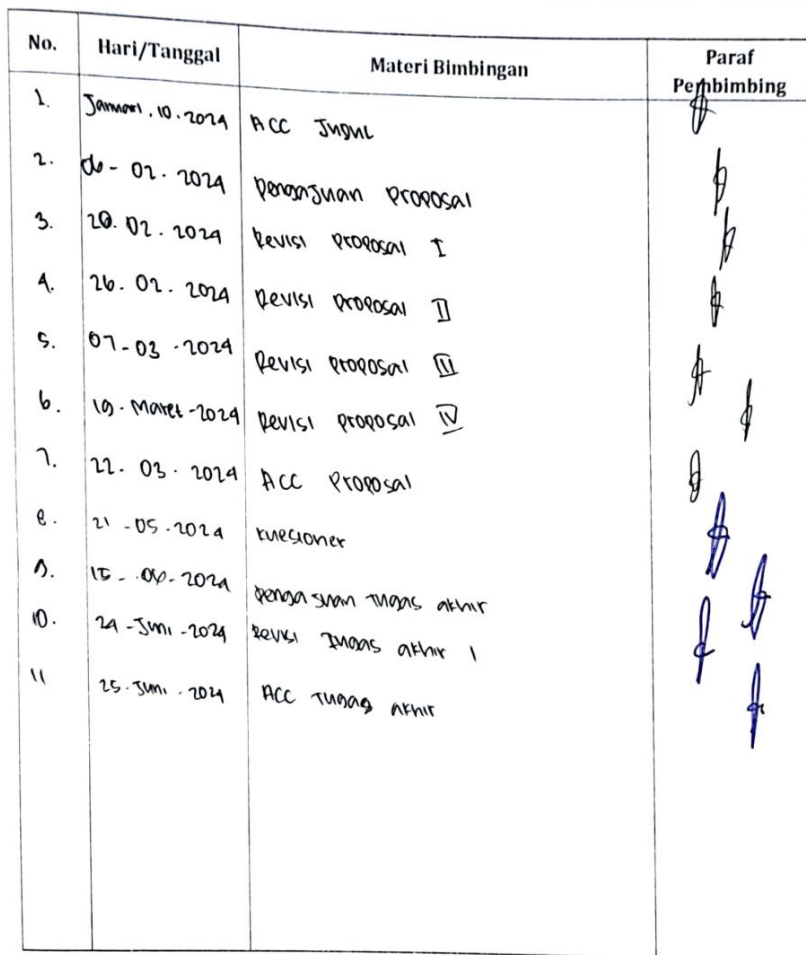 No. Hari/Tanggal Materi Bimbingan Paraf Pembimbing
1. Januari. 10. 2024 ACC Judul
2. 06 - 02. 2024 Pengajuan Proposal
3. 20. 02. 2024 Revisi Proposal I
4. 26. 02. 2024 Revisi Proposal II
5. 07 - 03 - 2024 Revisi Proposal III
6. 19 - Maret - 2024 Revisi Proposal IV
7. 22. 03. 2024 ACC Proposal
8. 21 - 05 - 2024 kuesioner
9. 15 - 06 - 2024 Pengajuan Tugas akhir
10. 24 - Juni - 2024 Revisi Tugas akhir 1
11 25. Juni. 2024 ACC Tugas akhir